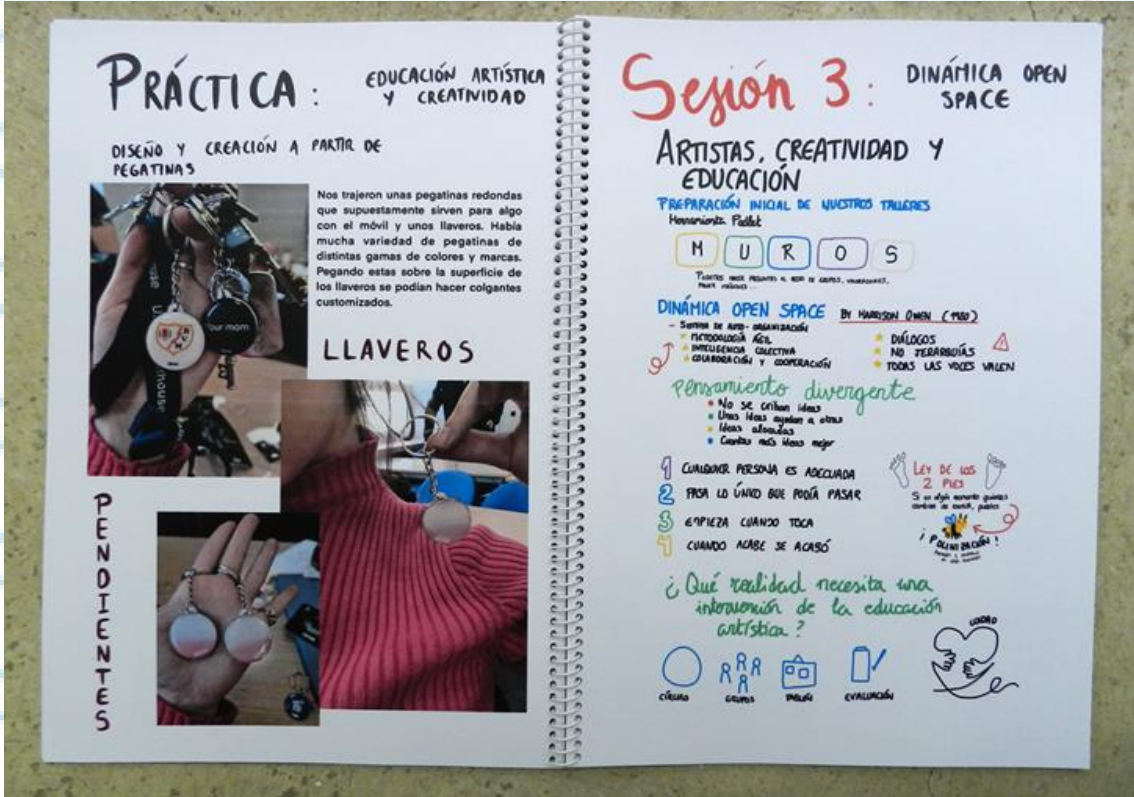 PRÁCTICA:
EDUCACIÓN ARTÍSTICA
Y CREATIVIDAD
DISEÑO Y CREACIÓN A PARTIR DE
PEGATINAS
Nos trajeron unas pegatinas redondas
que supuestamente sirven para algo
con el móvil y unos llaveros. Había
mucha variedad de pegatinas de
distintas gamas de colores y marcas.
Pegando estas sobre la superficie de
los llaveros se podían hacer colgantes
customizados.
your mom
LLAVEROS
PENDIENTES
Sesión 3:
DINÁMICA OPEN
SPACE
ARTISTAS, CREATIVIDAD Y
EDUCACIÓN
PREPARACIÓN INICIAL DE NUESTROS TALLERES
Herramienta Padlet
MUROS
DINÁMICA OPEN SPACE BY HARRISON OWEN (1980)
- SISTEMA DE AUTO-ORGANIZACIÓN
METODOLOGÍA ÁGIL
INTELIGENCIA COLECTIVA
COLABORACIÓN Y COOPERACIÓN
DIÁLOGOS
NO JERARQUÍAS
TODAS LAS VOCES VALEN
Pensamiento divergente
No se critican ideas
Unas ideas ayudan a otras
Ideas alocadas
Cuantas más ideas mejor
1 CUALQUIER PERSONA ES ADECUADA
2 PASA LO ÚNICO QUE PODÍA PASAR
3 EMPIEZA CUANDO TOCA
4 CUANDO ACABE SE ACABÓ
LEY DE LOS
2 PIES
¡POLINIZACIÓN!
¿Qué realidad necesita una
intervención de la educación
artística?
CÍRCULO
GRUPOS
TABLÓN
EVALUACIÓN
CUIDADO